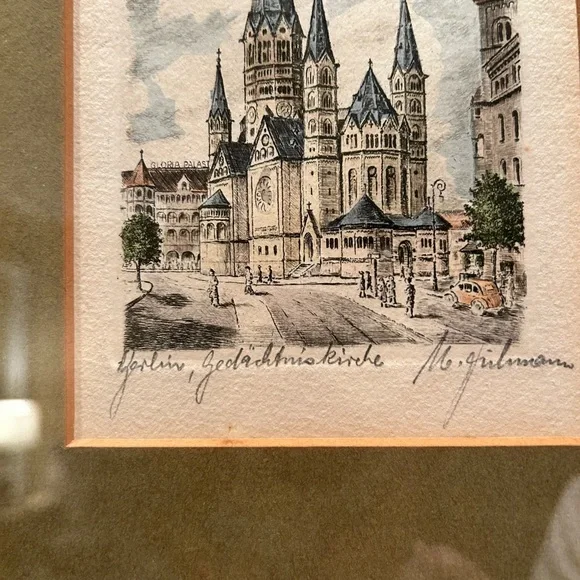 GLORIA PALAST
Berlin, Gedächtniskirche M.